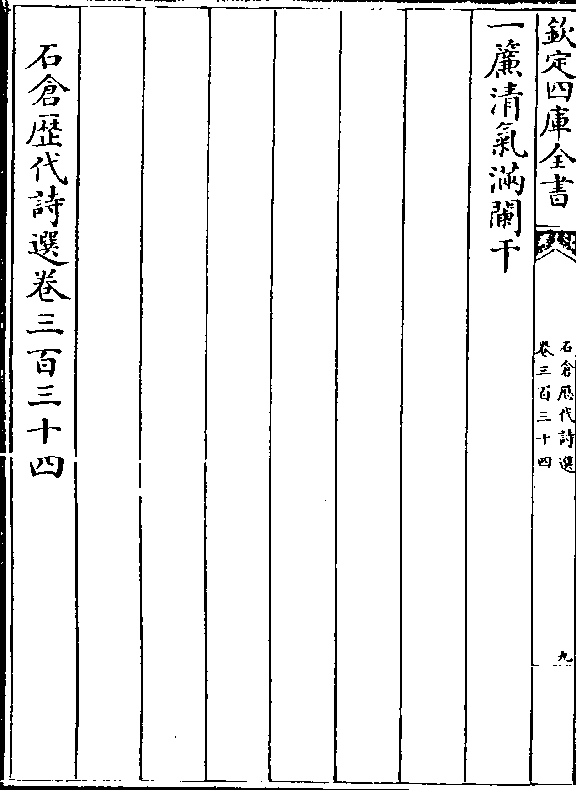 欽定四庫全書
石倉歷代詩選
卷三百三十四
九
一簾清氣滿闌干
石倉歷代詩選卷三百三十四